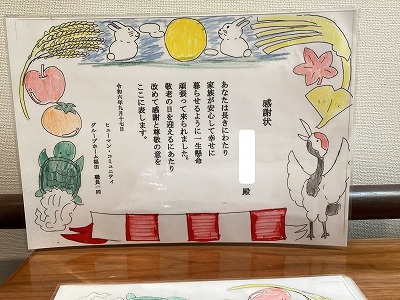 感謝状
殿
あなたは長きにわたり
家族が安心して幸せに
暮らせるように一生懸命
頑張って来られました。
敬老の日を迎えるにあたり
改めて感謝と尊敬の意を
ここに表します。
令和六年九月十七日
ヒューマン・コミュニティ
グループホーム福田 職員一同